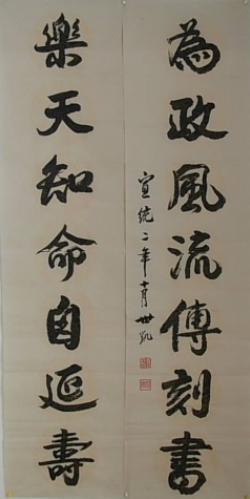 為政風流傳刻書
宣統二年十月世凱
樂天知命自延壽